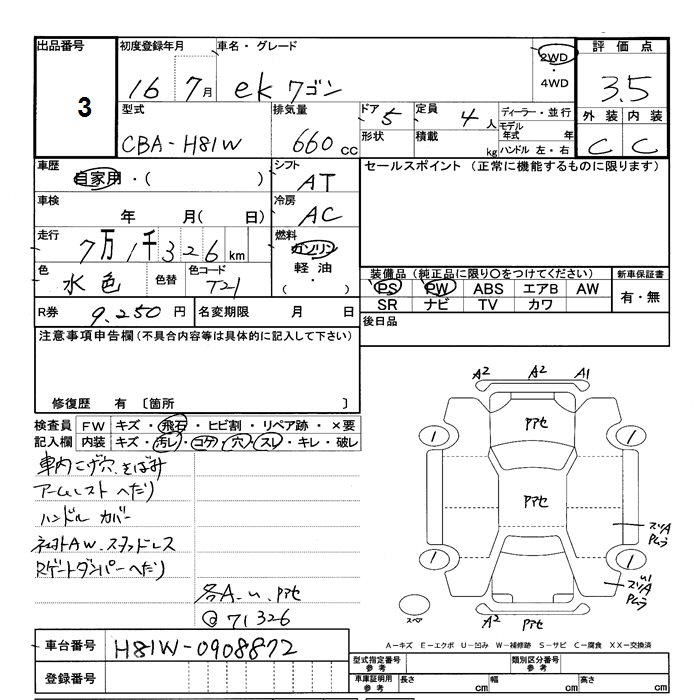 出品番号 初度登録年月 車名・グレード 2WD 評価点
3 16 7月 ekワゴン ・4WD 3.5
型式 排気量 ドア 5 定員 4人 ディーラー・並行 外装 内装
CBA-H81W 660cc 形状 積載 kg モデル年式 年 C C
ハンドル 左・右
車歴 シフト セールスポイント (正常に機能するものに限ります)
自家用・( ) AT
車検 冷房
年 月( 日) AC
走行 燃料
7万1千326km ガソリン
色 色替 色コード 軽油 装備品(純正品に限り○をつけてください) 新車保証書
水色 T21 ・( ) PS PW ABS エアB AW 有・無
R券 9,250円 名変期限 月 日 SR ナビ TV カワ
後日品
注意事項申告欄(不具合内容等は具体的に記入して下さい)
修復歴 有 〔箇所 〕
A2 A2 A1
検査員 FW キズ・飛石・ヒビ割・リペア跡・×要
記入欄 内装 キズ・汚レ・コゲ・穴・スレ・キレ・破レ
1 アアセ 1
車内こげ穴、そばみ
アームレストへたり
ハンドル カバー
AW.スタッドレス
Rゲートダンパーへたり
アアセ
1 1
各A-u.アアセ
@71326
スペ A2 アアセ
A-キズ E-エクボ U-凹み W-補修跡 S-サビ C-腐食 XX-交換済
車台番号 H81W-0908872
登録番号
型式指定番号参考 類別区分番号参考
車庫証明用参考 長さ cm 幅 cm 高さ cm